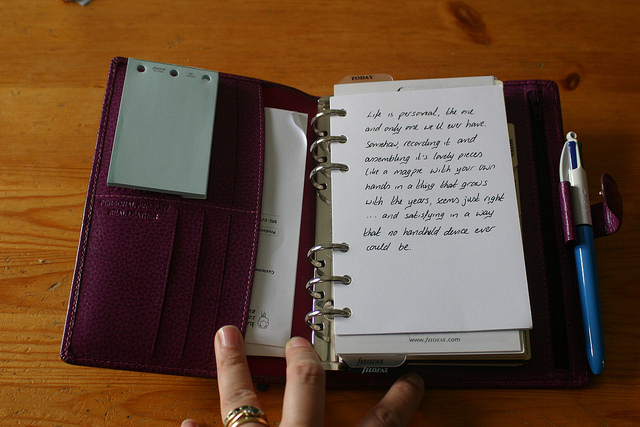 TODAY
Life is personal, the one
and only one we'll ever have.
Somehow, recording it and
assembling it's lovely pieces
like a magpie with your own
hands in a thing that grows
with the years, seems just right
... and satisfying in a way
that no handheld device ever
could be.
www.filofax.com
filofax
filofax